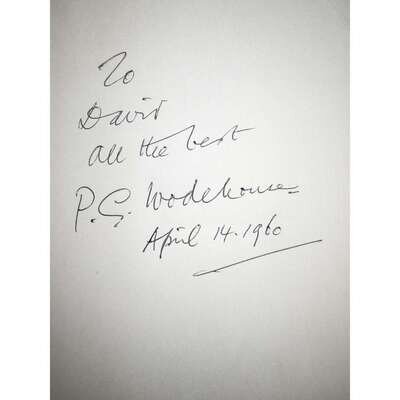 To
David
all the best
P.G. Wodehouse
April 14.1960